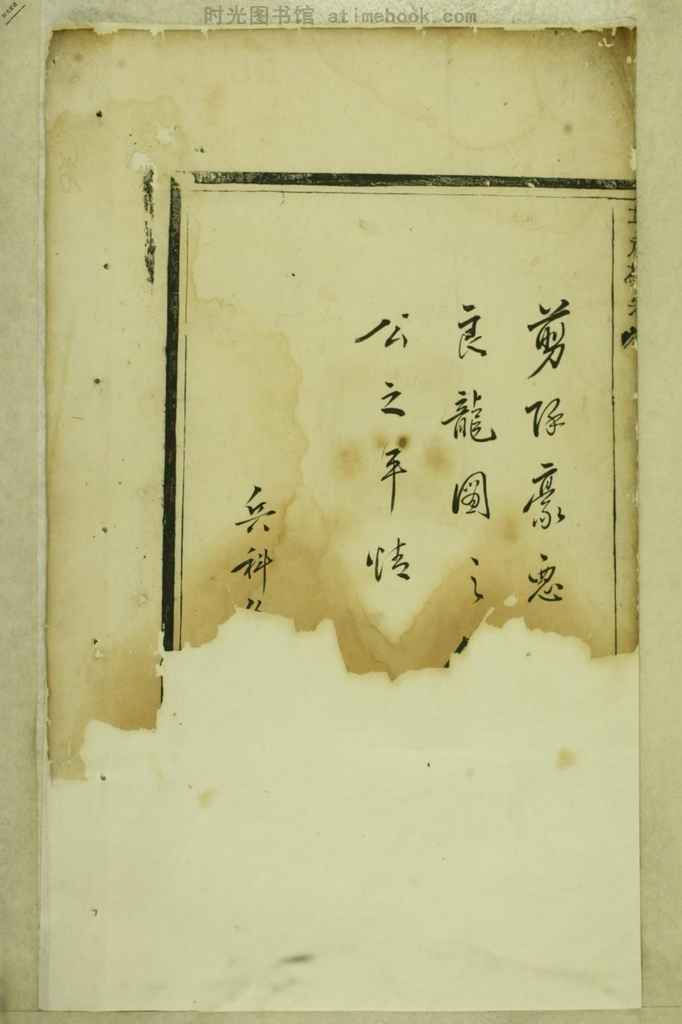 时光图书馆 atimebook.com
剪除豪惡
良龍圖之
公之平情
兵科